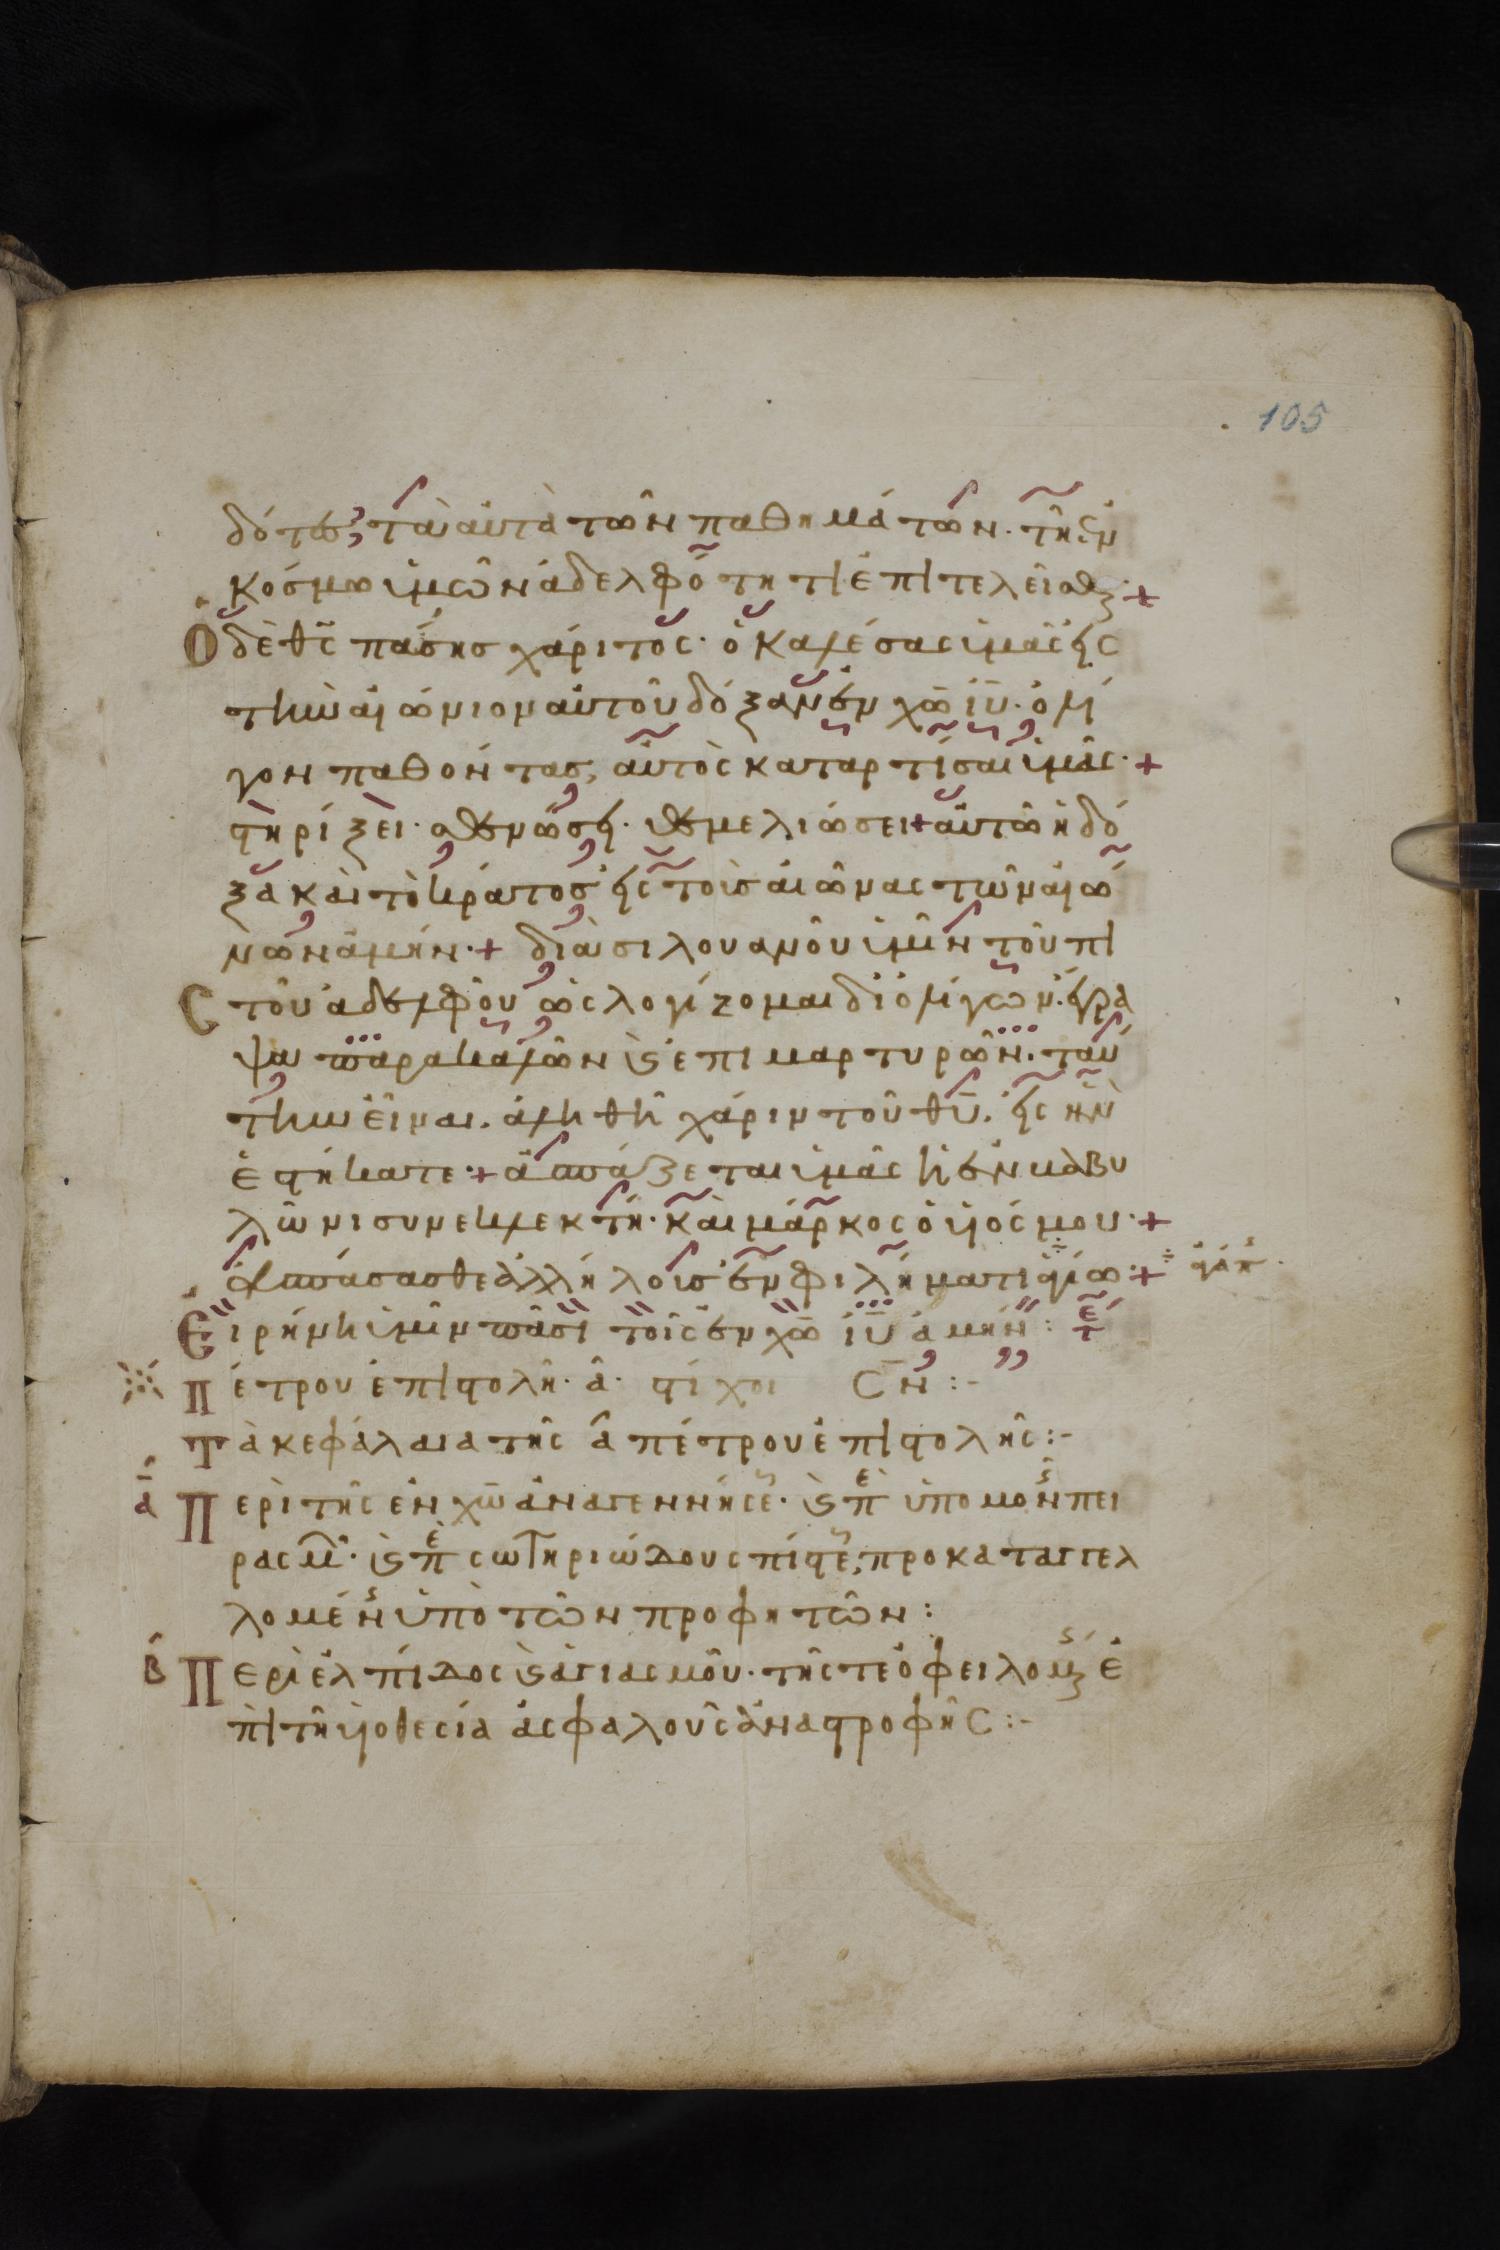 105
δότες, τὰ αὐτὰ τῶν παθημάτων. τῆ ἐν
κόσμω ὑμῶν ἀδελφότητι ἐπιτελεῖσθαι·+
Ὁ δὲ θς πάσης χάριτος· ὁ καλέσας ὑμᾶς εἰς
τὴν αἰώνιον αὐτοῦ δόξαν ἐν χω ιυ. ὀλί
γον παθόντας, αὐτὸς καταρτίσαι ὑμᾶς·+
στηρίξει. σθενώσει. θεμελιώσει+αὐτῶ ἡ δό
ξα καὶ τὸ κράτος εἰς τοὺς αἰῶνας τῶν αἰώ
νων ἀμήν·+ διὰ σιλουανοῦ ὑμῖν τοῦ πι
ς τοῦ ἀδελφοῦ ὡς λογίζομαι δι' ὀλίγων. ἔγρα
ψα παρακαλῶν ϗ ἐπιμαρτυρῶν. ταύ
την εἶναι. ἀληθῆ χάριν τοῦ θυ. εἰς ἣν
ἑστήκατε·+ ἀσπάζεται ὑμᾶς ἡ ἐν βαβυ
λῶνι συνεκλεκτή. καὶ μάρκος ὁ υἱός μου·+
ἀσπάσασθε ἀλλήλοις ἐν φιλήματι ἁγίω·+
Εἰρήνη ὑμῖν πᾶσι τοῖς ἐν χω ιυ ἀμήν:
πέτρου ἐπιστολὴ. α. στίχοι ϲν:-
Τὰ κεφάλαια τῆς α πέτρου ἐπιστολῆς:-
α Περὶ τῆς ἐν χω ἀναγεννήσε. ϗ πε ὑπομον πει
ρασμ. ϗ πε σωτηριώδους πίστε, προκαταγγελ
λομέν ὑπὸ τῶν προφητῶν:
β Περὶ ἐλπίδος ϗ ἁγιασμοῦ. τῆς τε ὀφειλομ ἐ
πὶ τῆ υἱοθεσία ἀσφαλοῦς ἀναστροφῆς:-